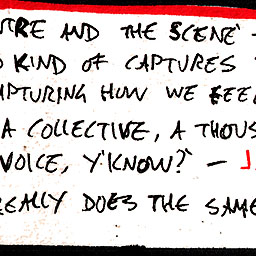 AND THE SCENE -
KIND OF CAPTURES
HOW WE FEEL
A COLLECTIVE, A THOUS
VOICE, Y'KNOW?" -
REALLY DOES THE SAME